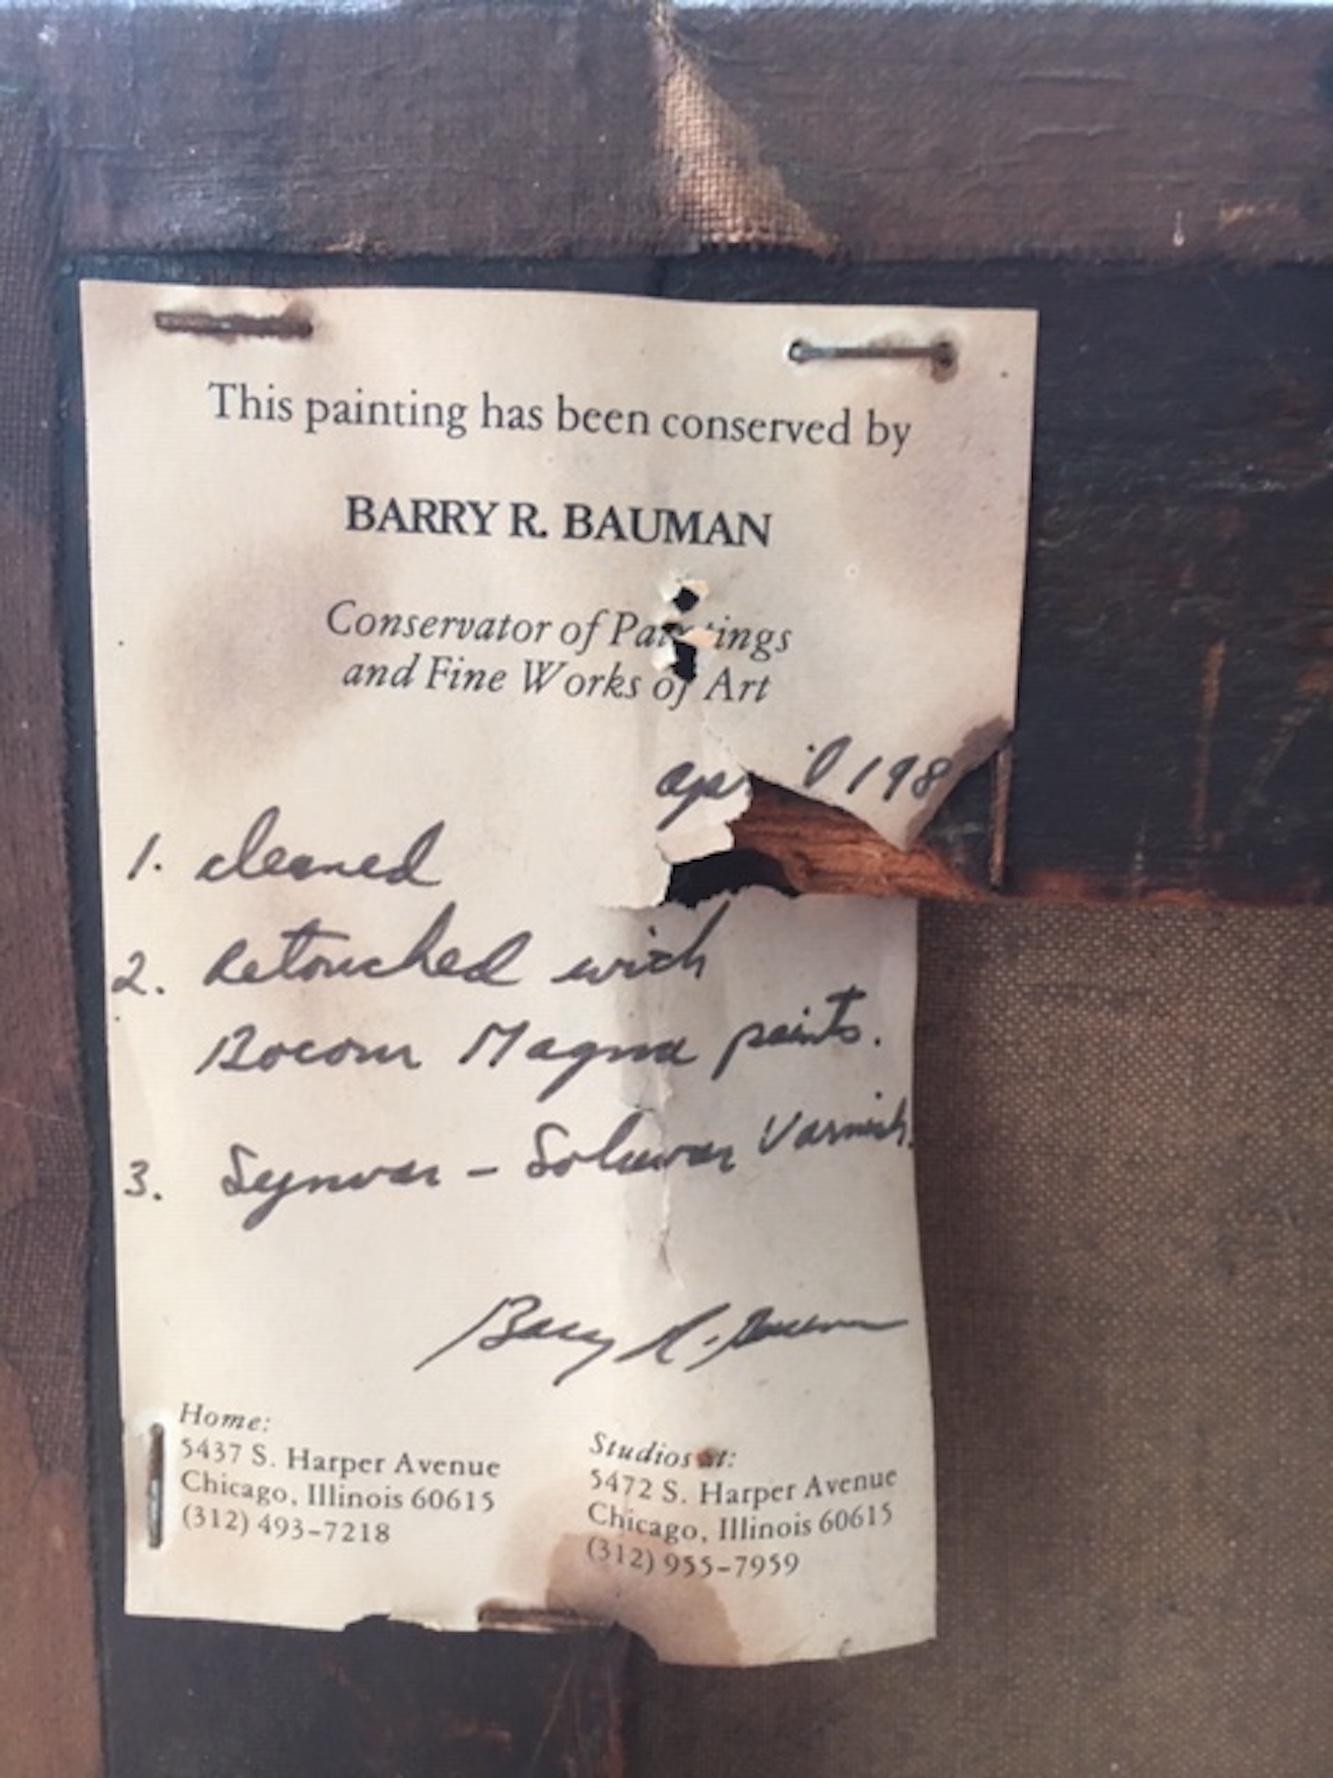 This painting has been conserved by
BARRY R. BAUMAN
Conservator of Paintings
and Fine Works of Art
april 198
1. cleaned
2. Retouched with
Bocour Magna paints.
3. Synvar - Soluvar Varnish.
Barry R. Bauman
Home:
5437 S. Harper Avenue
Chicago, Illinois 60615
(312) 493-7218
Studios at:
5472 S. Harper Avenue
Chicago, Illinois 60615
(312) 955-7959